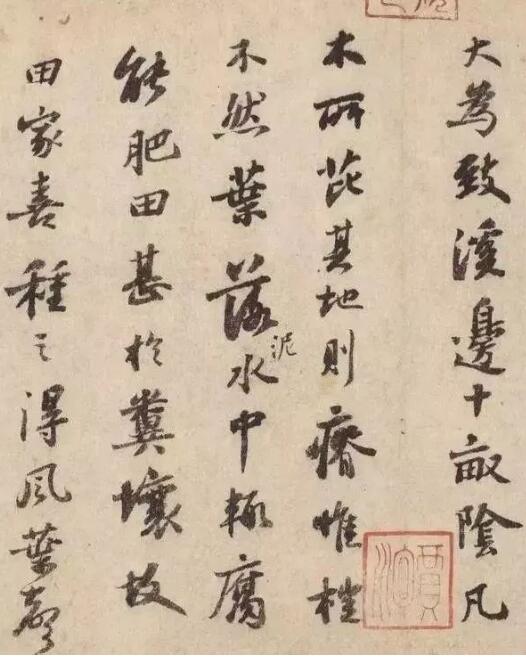 大為致溪邊十畝陰凡
木所芘其地則瘠惟榿
不然葉落泥水中輒腐
能肥田甚於糞壤故
田家喜種之得風葉聲